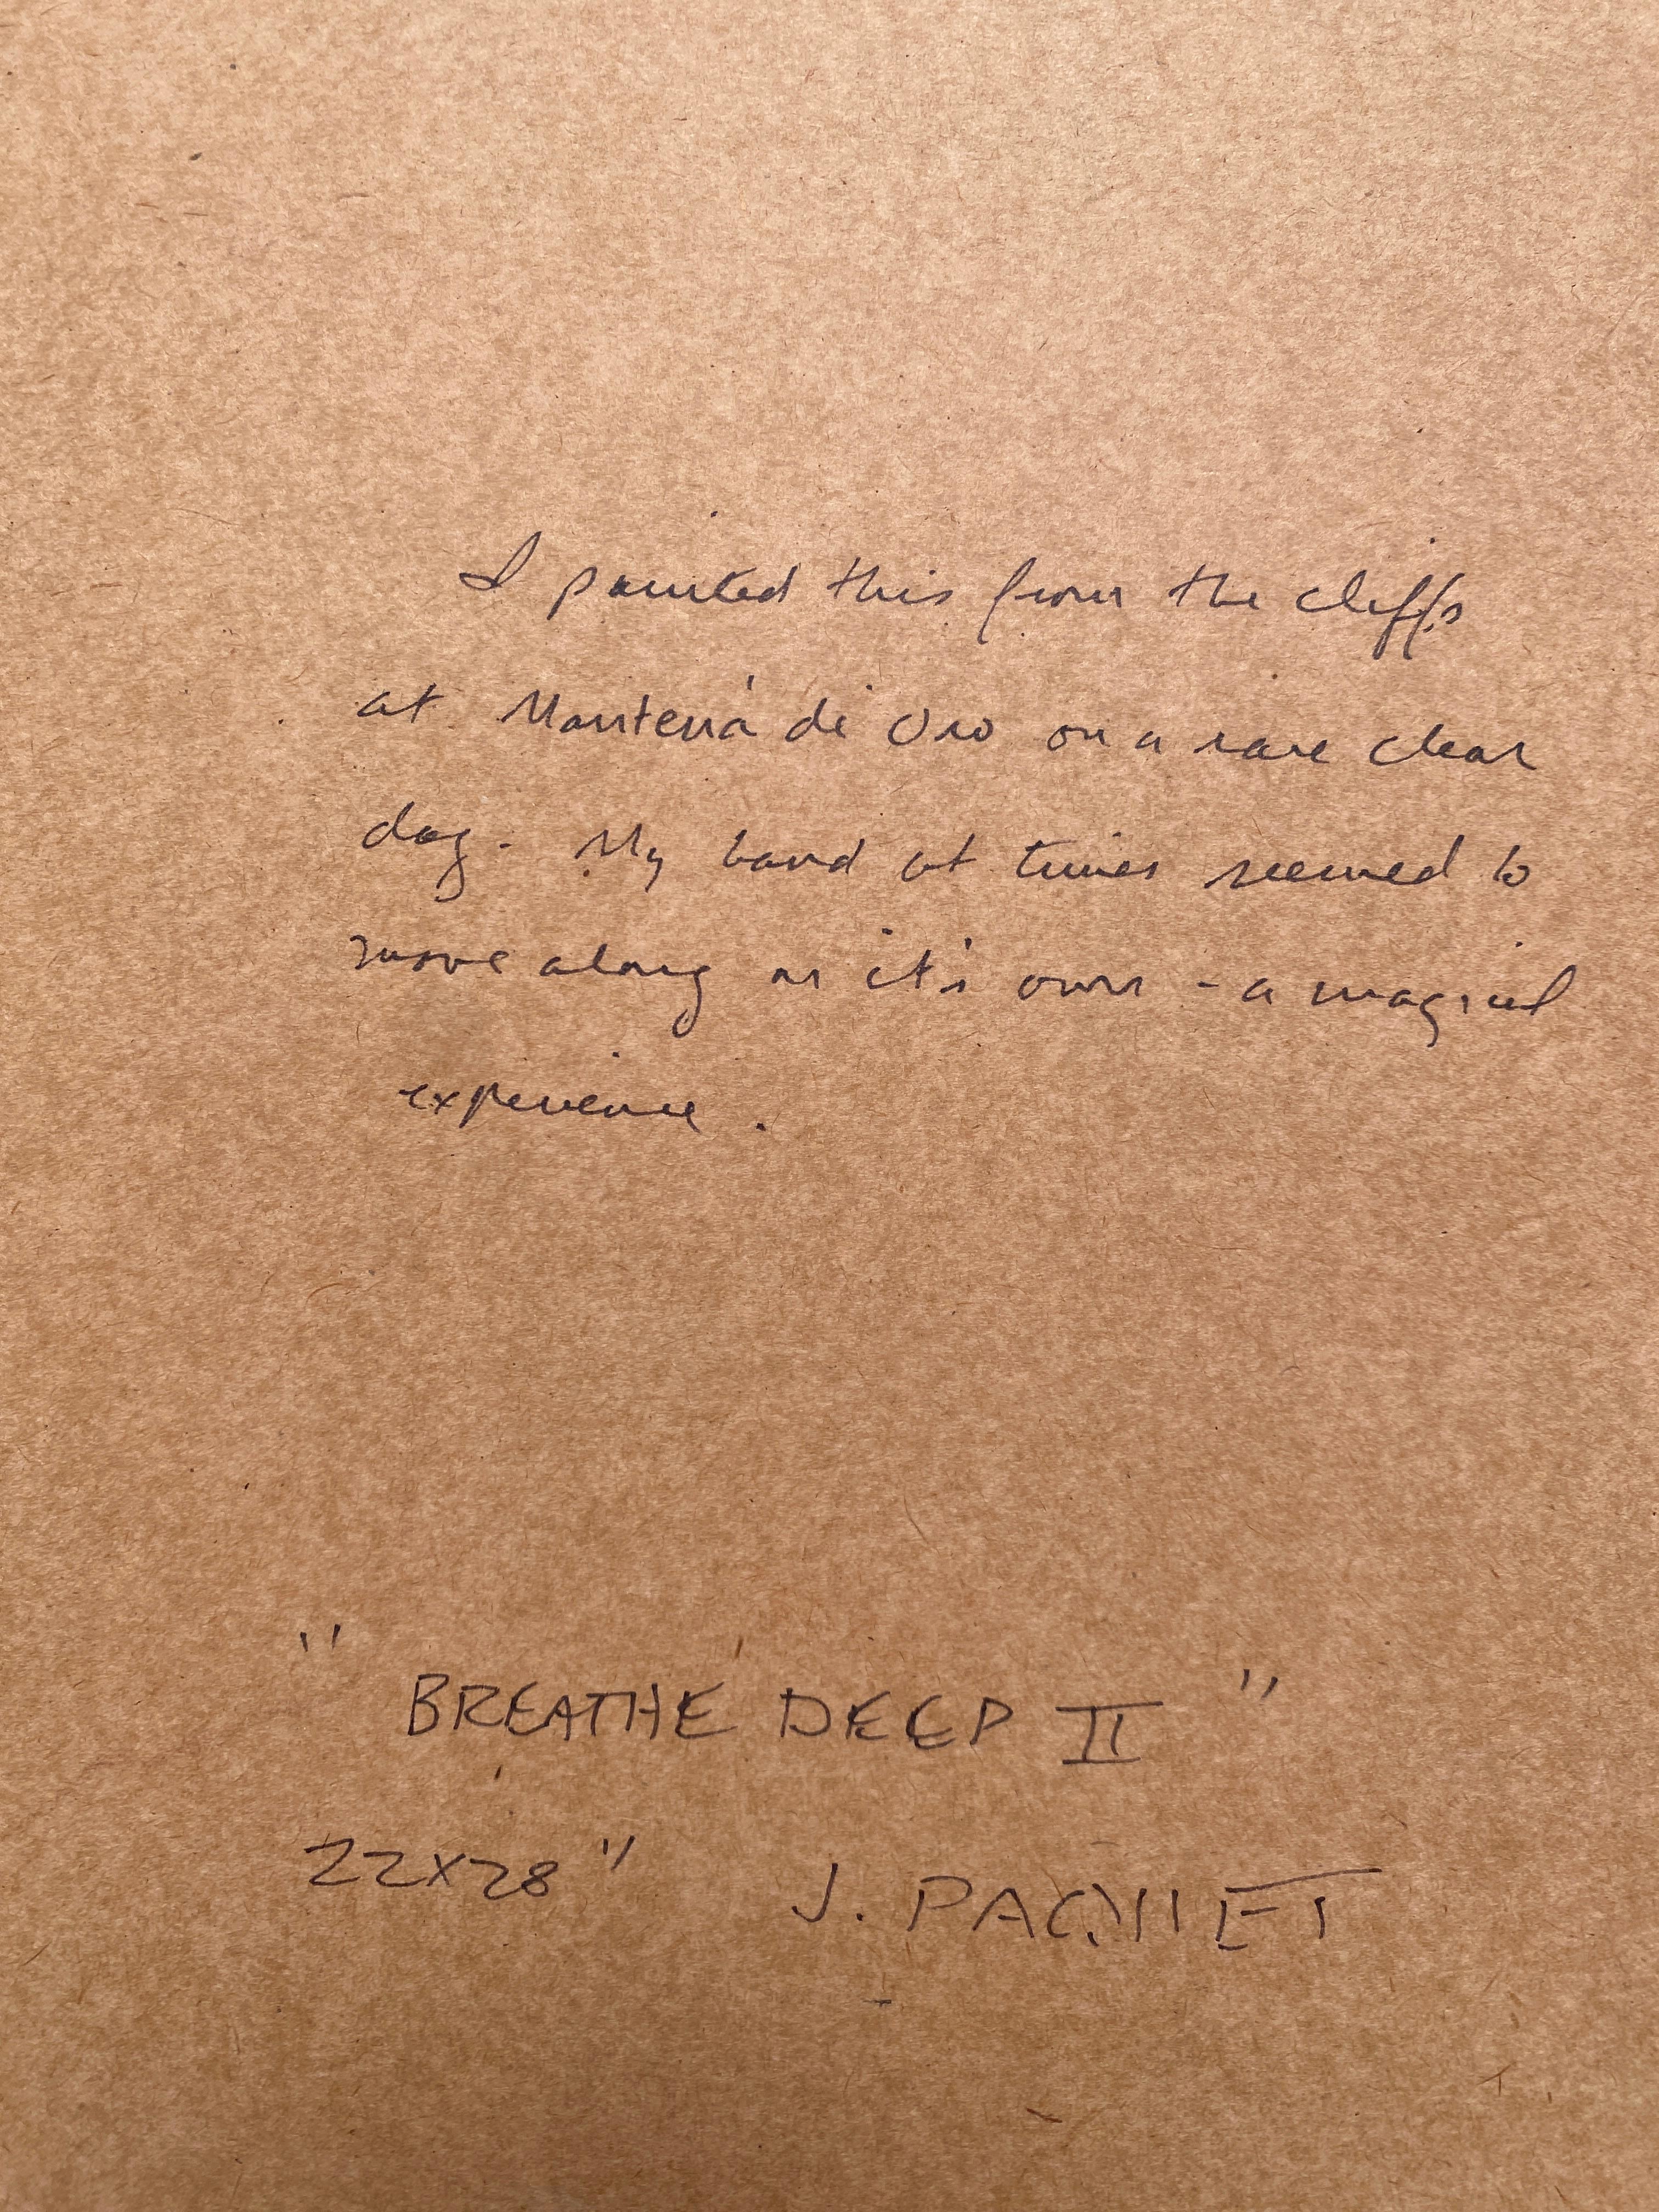 I painted this from the cliffs
at Montená de Oro on a rare clear
day. My hand at times seemed to
move along on it's own - a magical
experience.
"BREATHE DEEP II"
22x28" J. PAQUET